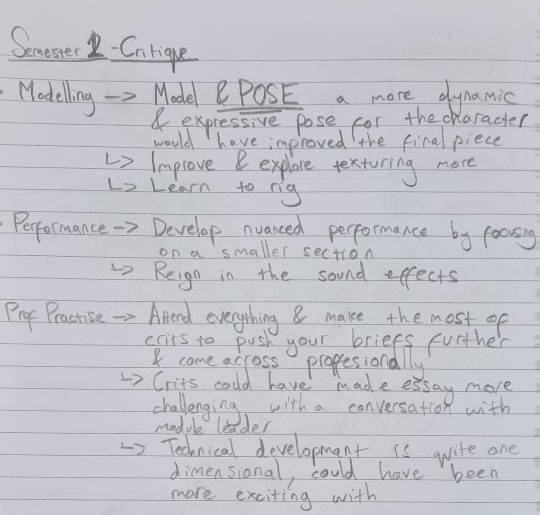 Semester 2 - Critique
• Modelling --> Model & POSE a more dynamic
& expressive pose for the character
would have improved the final piece
↳ Improve & explore texturing more
↳ Learn to rig
• Performance --> Develop nuanced performance by focusing
on a smaller section
↳ Reign in the sound effects
Prof Practise --> Attend everything & make the most of
crits to push your briefs further
& come across proffesionally
↳ Crits could have made essay more
challenging with a conversation with
module leader
↳ Technical development is quite one
dimensional, could have been
more exciting with